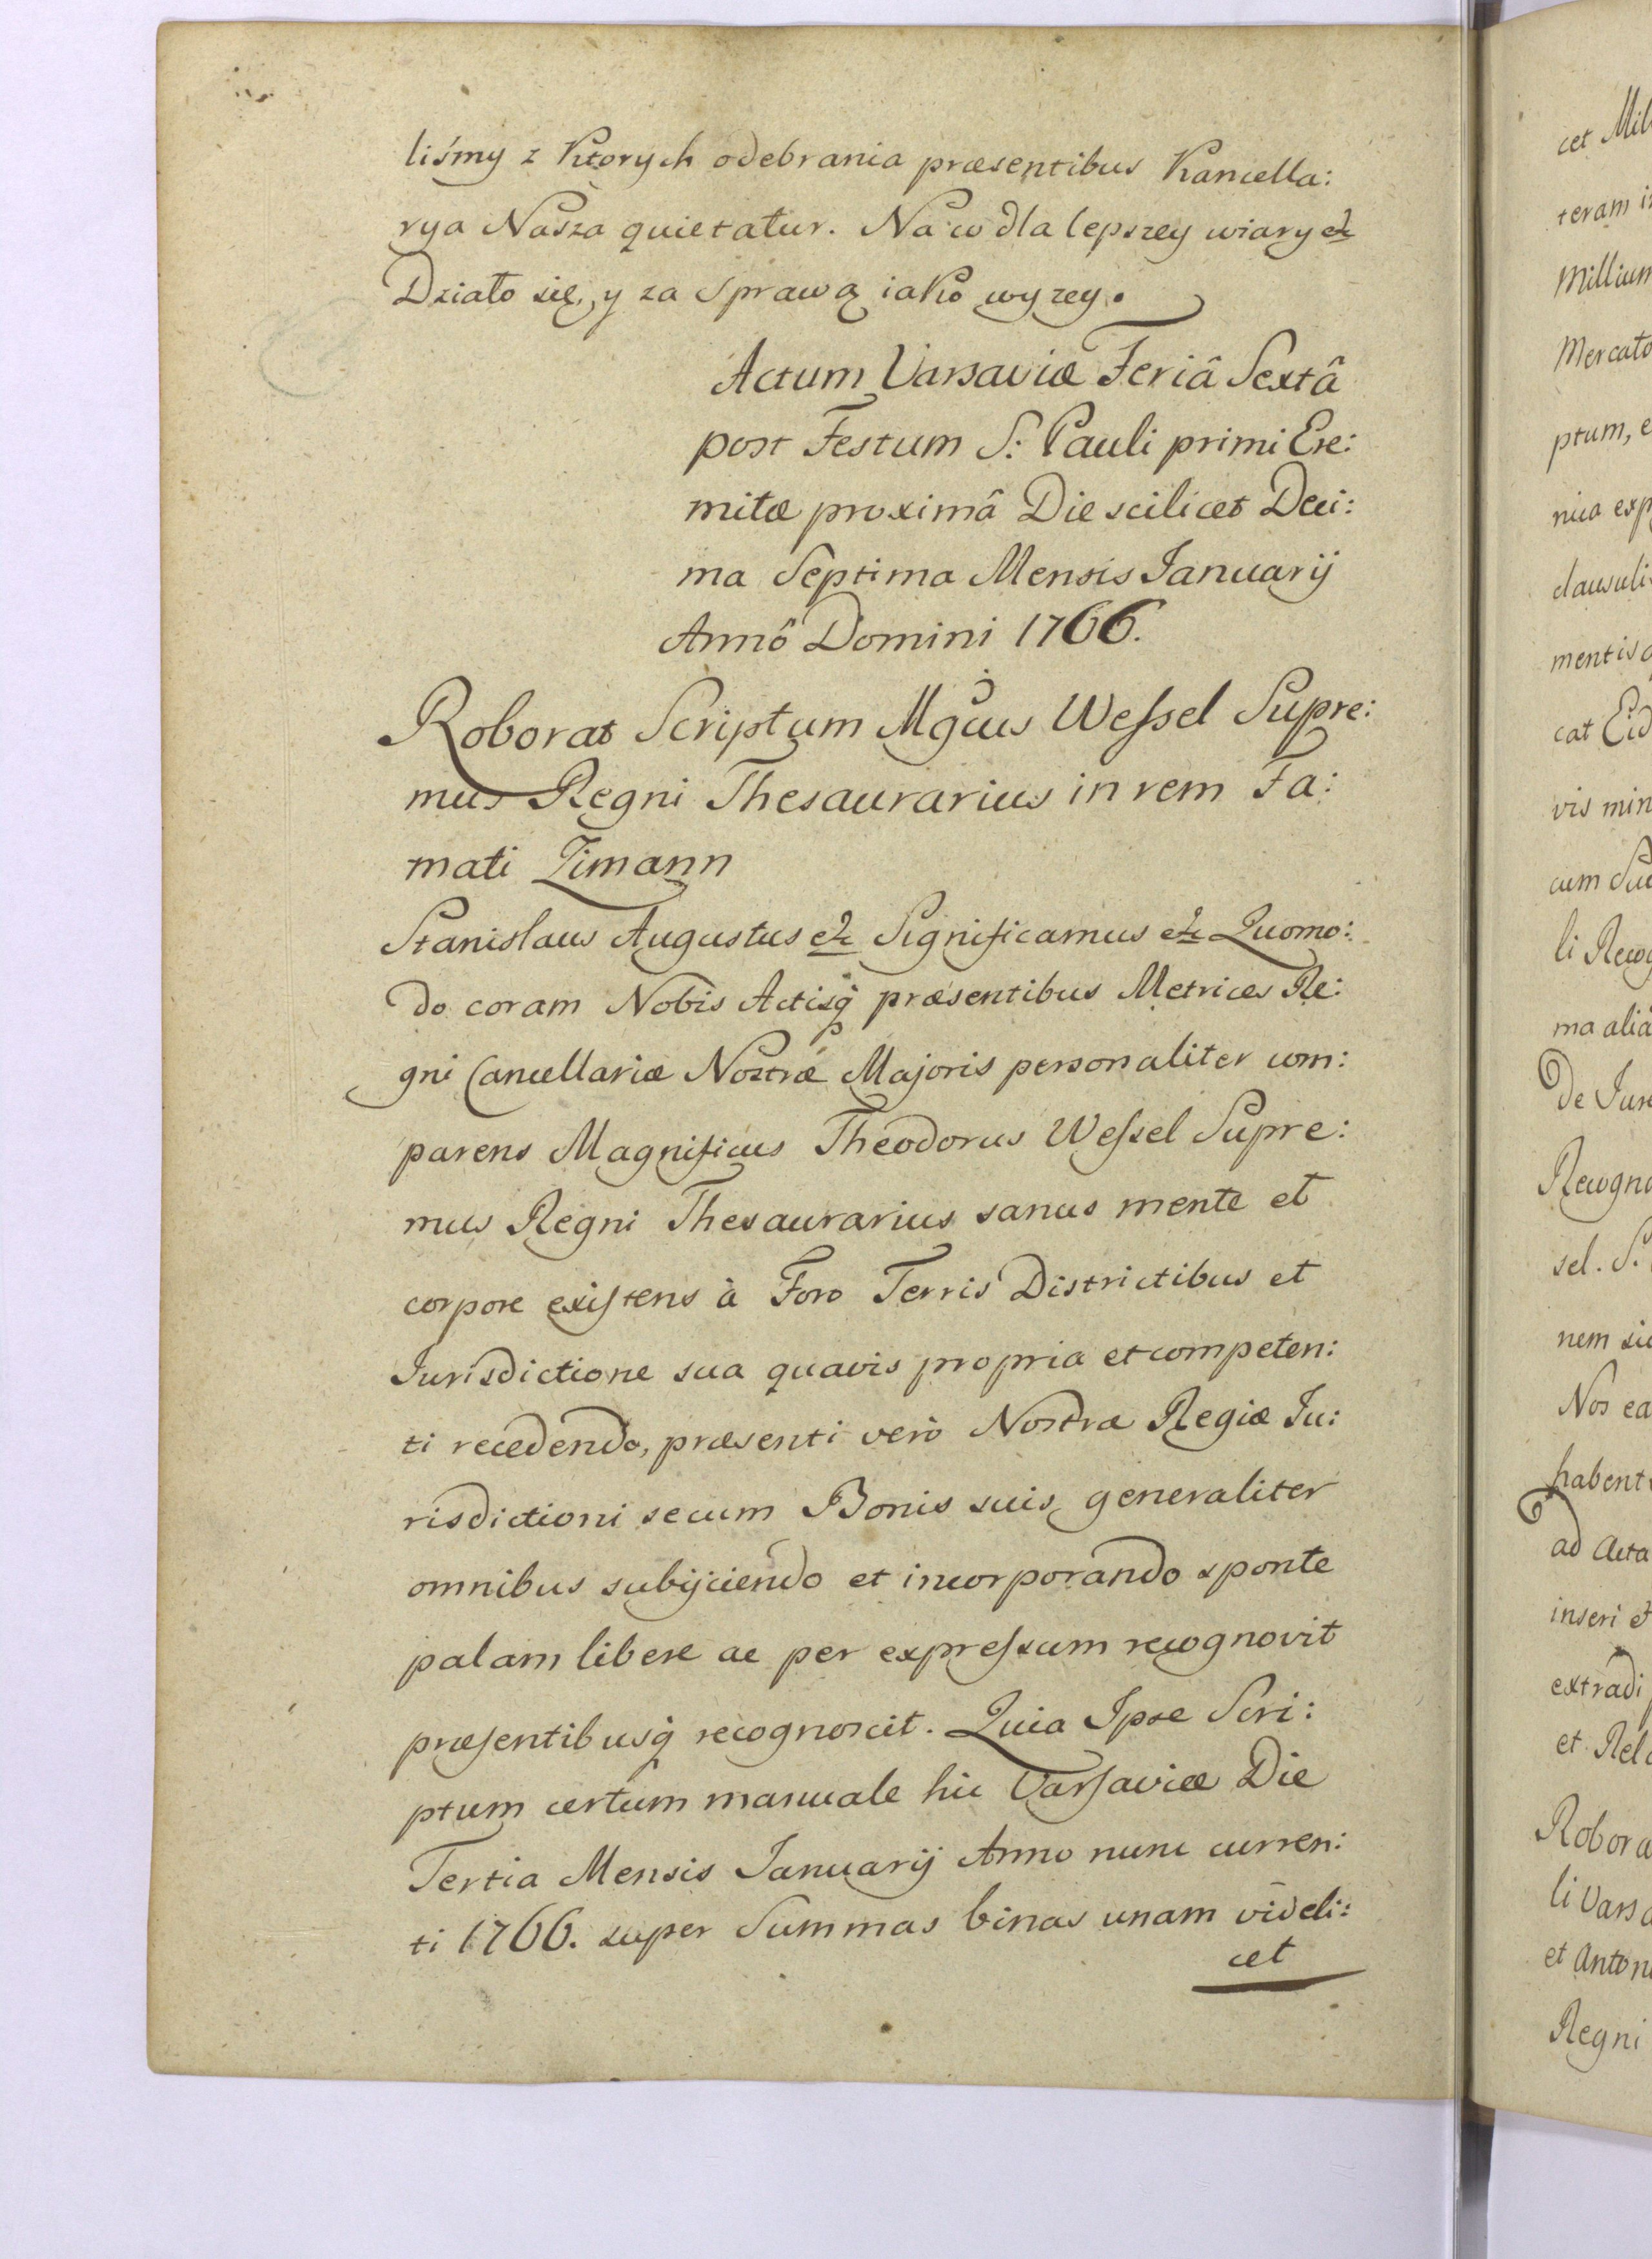 liśmy z Ktorych odebrania præsentibus Kancella:
rya Nasza quietatur. Na co dla lepszey wiary etc
Działo się, y za Sprawą iako wyzey.
Actum Varsaviæ Feriâ Sextâ
post Festum S: Pauli primi Ere:
mitæ proximâ Die scilicet Deci:
ma Septima Mensis Januarij
Annô Domini 1766.
Roborat Scriptum Mgcus Weſsel Supre:
mus Regni Thesaurarius in rem Fa:
mati Zimann
Stanislaus Augustus etc Significamus etc Quomo:
do coram Nobis Actisq́ præsentibus Metrices Re:
gni Cancellariæ Nostræ Majoris personaliter com:
parens Magnificus Theodorus Weſsel Supre:
mus Regni Thesaurarius sanus mente et
corpore exiſtens à Foro Terris Districtibus et
Jurisdictione sua quavis propria et competen:
ti recedendo, præsenti verò Nostræ Regiæ Ju:
risdictioni se cum Bonis suis generaliter
omnibus subijciendo et incorporando sponte
palam libere ac per expreſsum recognovit
præſentibusq́ recognoscit. Quia Ipse Scri:
ptum certum manuale hic Varſaviæ Die
Tertia Mensis Januarij Anno nunc curren:
ti 1766. super Summas binas unam videli:
cet
cet Mil
teram i
Millium
Mercato
ptum, e
nica exp
clausuli
mentis
cat Eid
vis min
cum Suc
li Recog
ma aliâ
De Jur
Recogno
sel. S.
nem sic
Nos ea
habent
ad Acta
inseri et
extradi
et Rel
Robora
li Vars
et Anton
Regni